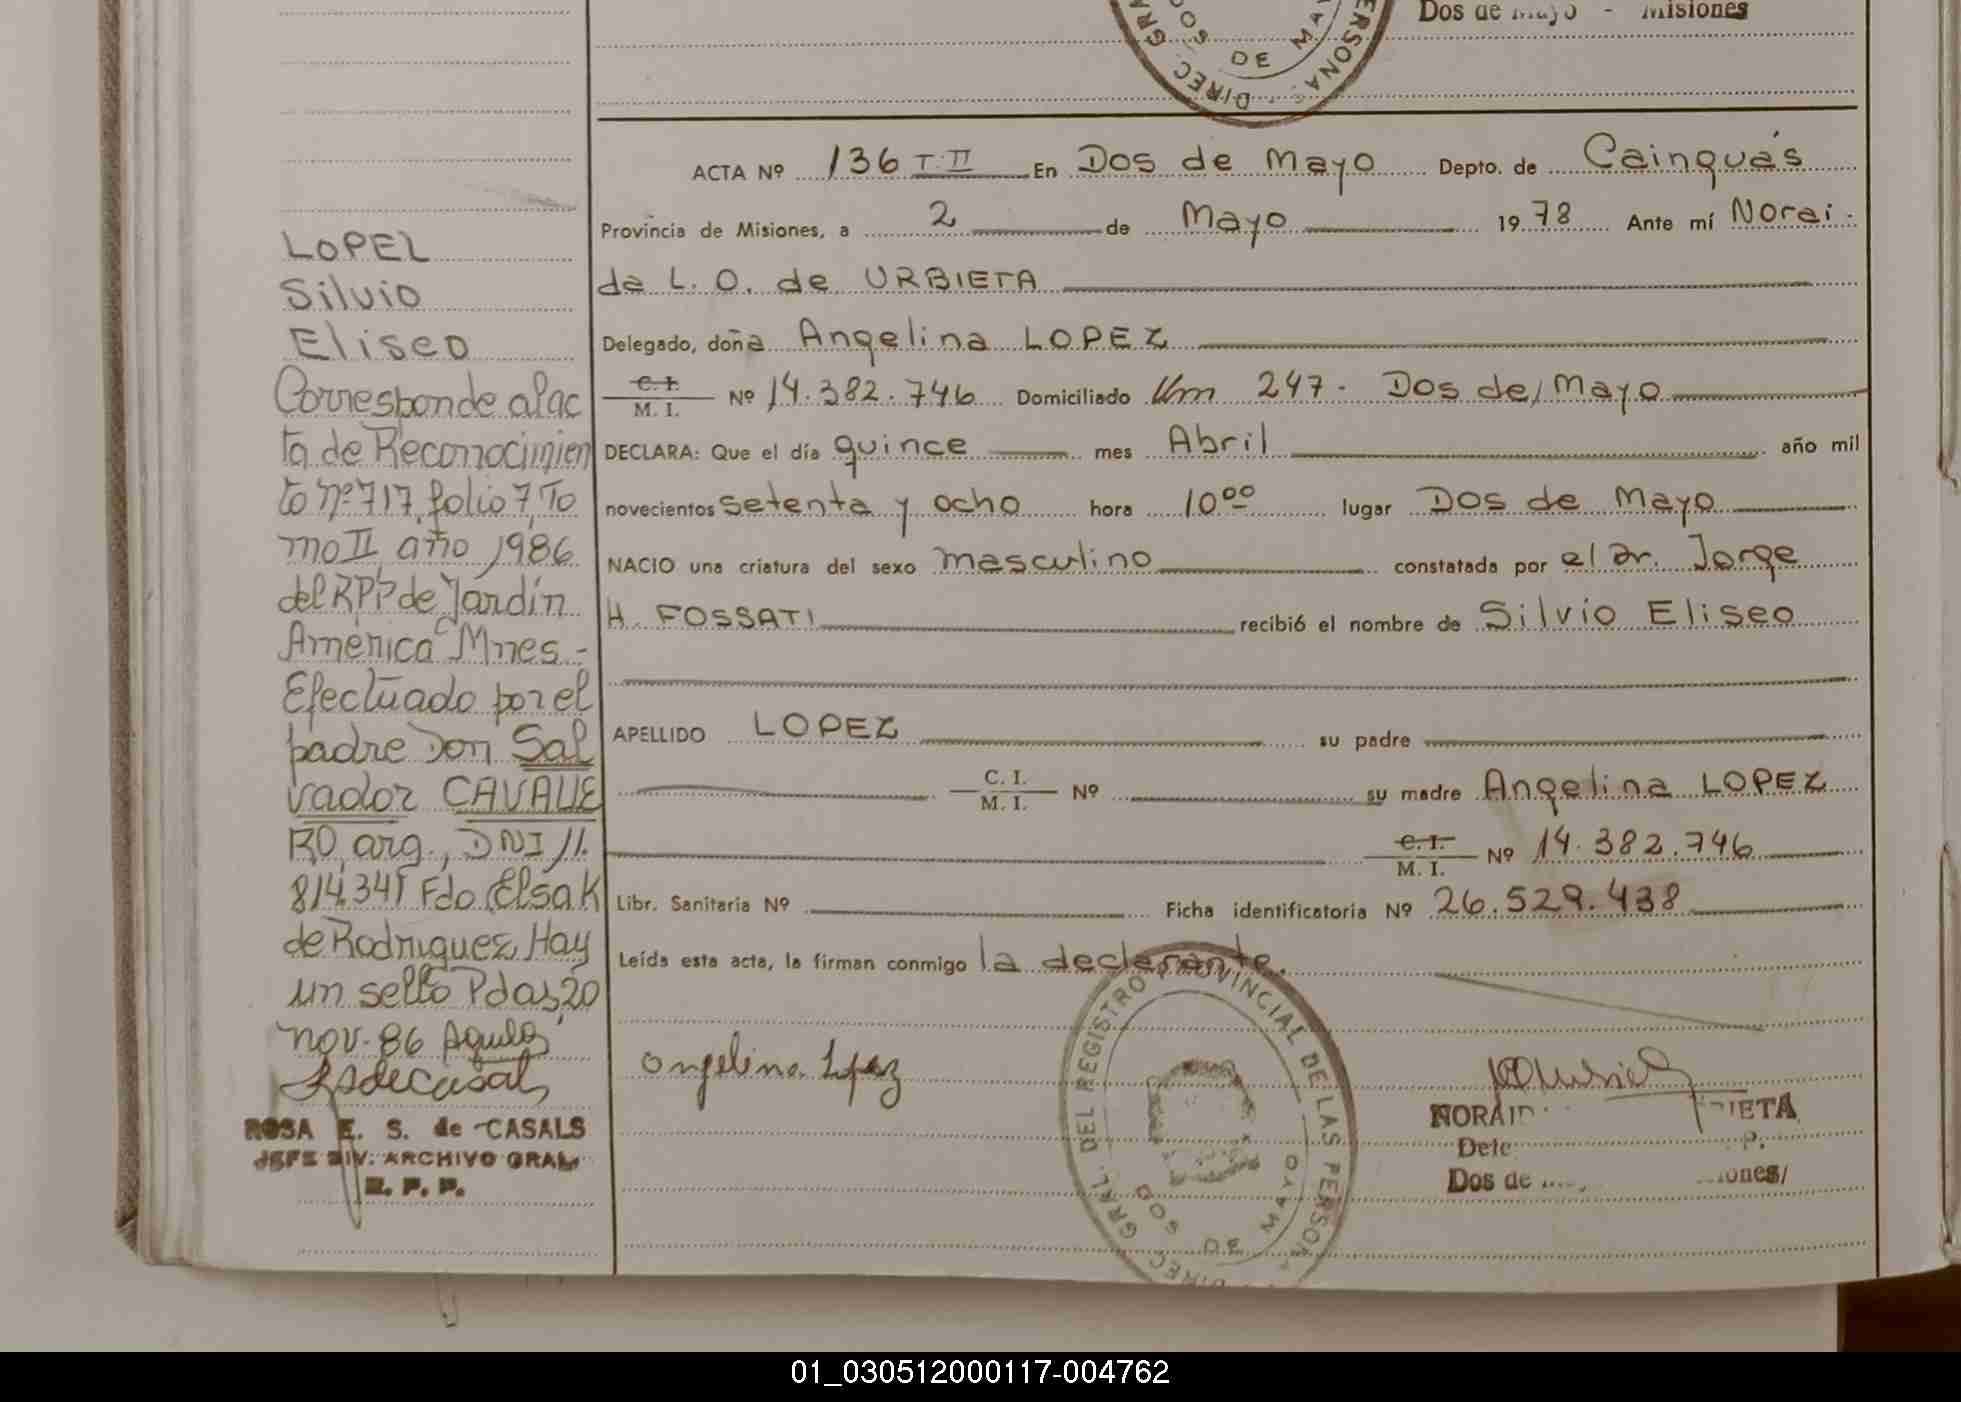 Dos de Mayo - Misiones
DOS DE MAYO
DIREC. GRA
PERSONAS
ACTA Nº 136 T. II En Dos de Mayo Depto. de Cainguás
Provincia de Misiones, a 2 de Mayo 1978 Ante mí Norai-
da L. O. de URBIETA
Delegado, doña Angelina LOPEZ
C. I.
M. I. Nº 14.382.746 Domiciliado Km 247. Dos de Mayo
DECLARA: Que el día quince mes Abril año mil
novecientos setenta y ocho hora 10ºº lugar Dos de Mayo
NACIO una criatura del sexo masculino constatada por el Dr. Jorge
H. FOSSATI recibió el nombre de Silvio Eliseo
APELLIDO LOPEZ su padre
C. I.
M. I. Nº su madre Angelina LOPEZ
C. I.
M. I. Nº 14.382.746
Libr. Sanitaria Nº Ficha identificatoria Nº 26.529.438
Leída esta acta, la firman conmigo la declarante.
Angelina Lopez
DIREC. GRAL. DEL REGISTRO PROVINCIAL DE LAS PERSONAS
DOS DE MAYO
NORAID IETA
Dele P.
Dos de iones/
LOPEZ
Silvio
Eliseo
Corresponde al ac
ta de Reconocimien
to nº 717, folio 7, To
mo II año 1986
del RPP de Jardín
América Mnes -
Efectuado por el
padre Don Sal
vador CAVALLE
RO, arg., DNI 11.
814.341 Fdo Elsa K
de Rodriguez, Hay
un sello Pdas, 20
nov-86
ROSA E. S. de CASALS
JEFE DIV. ARCHIVO GRAL
R. P. P.
01_030512000117-004762